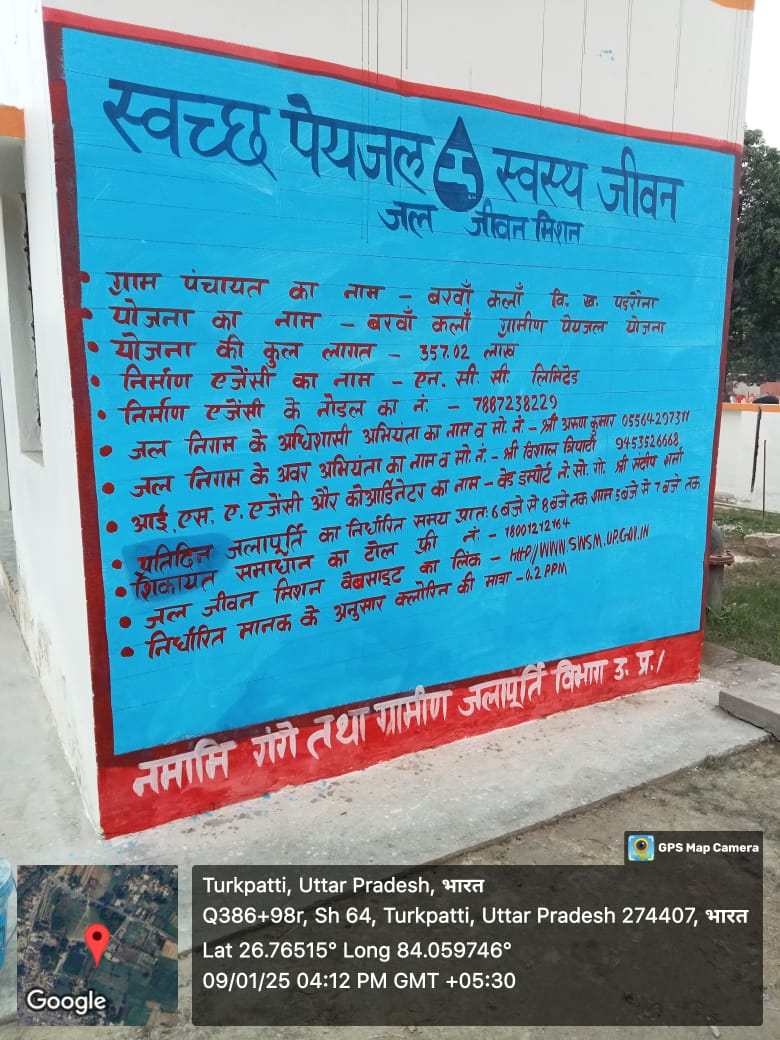 स्वच्छ पेयजल स्वस्य जीवन
जल जीवन मिशन
• ग्राम पंचायत का नाम – बरवाँ कलाँ वि. ख. पडरौना
• योजना का नाम – बरवाँ कलाँ ग्रामीण पेयजल योजना
• योजना की कुल लागत – 357.02 लाख
• निर्माण एजेंसी का नाम – एन. सी. सी. लिमिटेड
• निर्माण एजेंसी के नोडल का नं. – 7887238229
• जल निगम के अधिशासी अभियंता का नाम व मो. नं. – श्री अरुण कुमार 05564297311
• जल निगम के अवर अभियंता का नाम व मो. नं. – श्री विशाल त्रिपाठी 9453526668
• आई. एस. ए. एजेंसी और कोआर्डिनेटर का नाम – वेड इस्पोर्ट ने. सो. गो. श्री संदीप शर्मा
• प्रतिदिन जलापूर्ति का निर्धारित समय प्रातः 6 बजे से 8 बजे तक शाम 5 बजे से 7 बजे तक
• शिकायत समाधान का टोल फ्री नं: – 18001212164
• जल जीवन मिशन वैबसाइट का लिंक – HttP//WWW.SWSM.UP.GOV.IN
• निर्धारित मानक के अनुसार क्लोरिन की मात्रा – 0.2 PPM
नमामि गंगे तथा ग्रामीण जलापूर्ति विभाग उ. प्र./
GPS Map Camera
Turkpatti, Uttar Pradesh, भारत
Q386+98r, Sh 64, Turkpatti, Uttar Pradesh 274407, भारत
Lat 26.76515° Long 84.059746°
09/01/25 04:12 PM GMT +05:30
Google